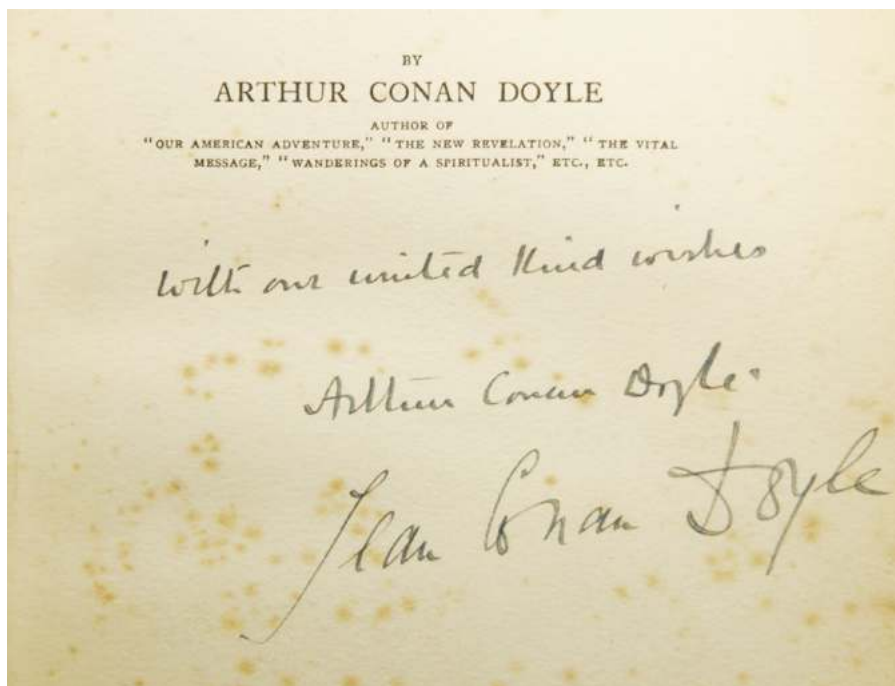 BY
ARTHUR CONAN DOYLE
AUTHOR OF
"OUR AMERICAN ADVENTURE," "THE NEW REVELATION," "THE VITAL
MESSAGE," "WANDERINGS OF A SPIRITUALIST," ETC., ETC.
With our united kind wishes
Arthur Conan Doyle.
Jean Conan Doyle